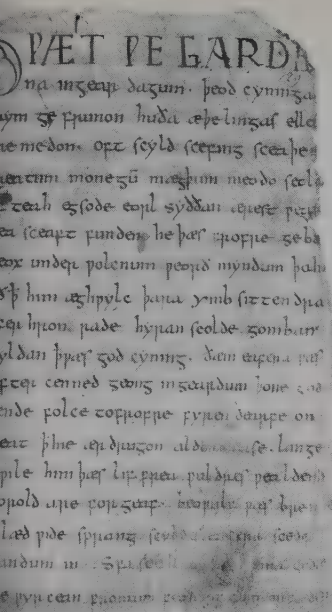 ǷÆT ǷE GARDE
na ingear dagum . þeod cyninga
ym ge frunon huða æþelingas elle
remedon . oft scyld scefing sceaþe
reatum monegū mægþum meodo setl
teah egsode eorl syððan ærest ƿear
ea sceaft funden he þæs frofre geba
eox under ƿolcnum ƿeorð myndum þah
ð ꝥ him æghƿylc þara ymb sittendra
fer hron rade hyran scolde gomban
yldan ꝥ ƿæs god cyning . ðæm eafera ƿæs
fter cenned geong ingeardum þone god
ende folce tofrofre fyren ðearfe on
eat ꝥ hie ær drugon aldor ase . lange
hƿile him þæs lif frea ƿuldres ƿealdend
orold are forgeaf . beoƿulf ƿæs breme
læd ƿide sprang scyldes eafera scede
andum in . sƿa sceal
ge ƿyrcean fromum